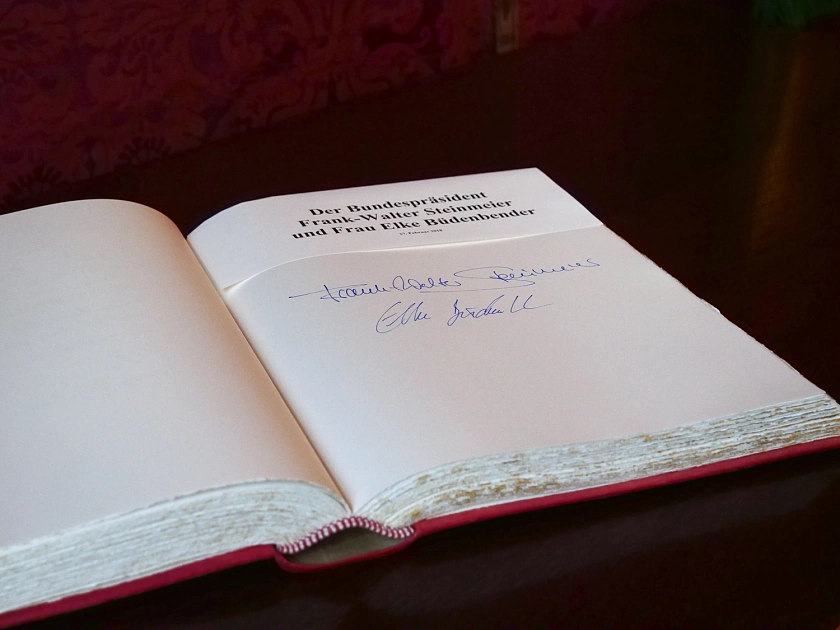 Der Bundespräsident
Frank-Walter Steinmeier
und Frau Elke Büdenbender
27. Februar 2018
Frank-Walter Steinmeier
Elke Büdenbender